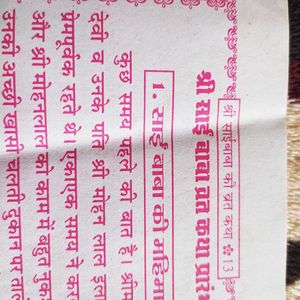 श्री साईंबाबा की व्रत कथा ✡ 3
श्री साईं बाबा व्रत कथा प्रार
1. साईं बाबा की महिमा
कुछ समय पहले की बात है। श्रीम
देवी व उनके पति श्री मोहन लाल इल
प्रेमपूर्वक रहते थे। एकाएक समय ने कर
और श्री मोहनलाल को काम में बहुत नुक
उनकी अच्छी खासी चलती दुकान पर ताल